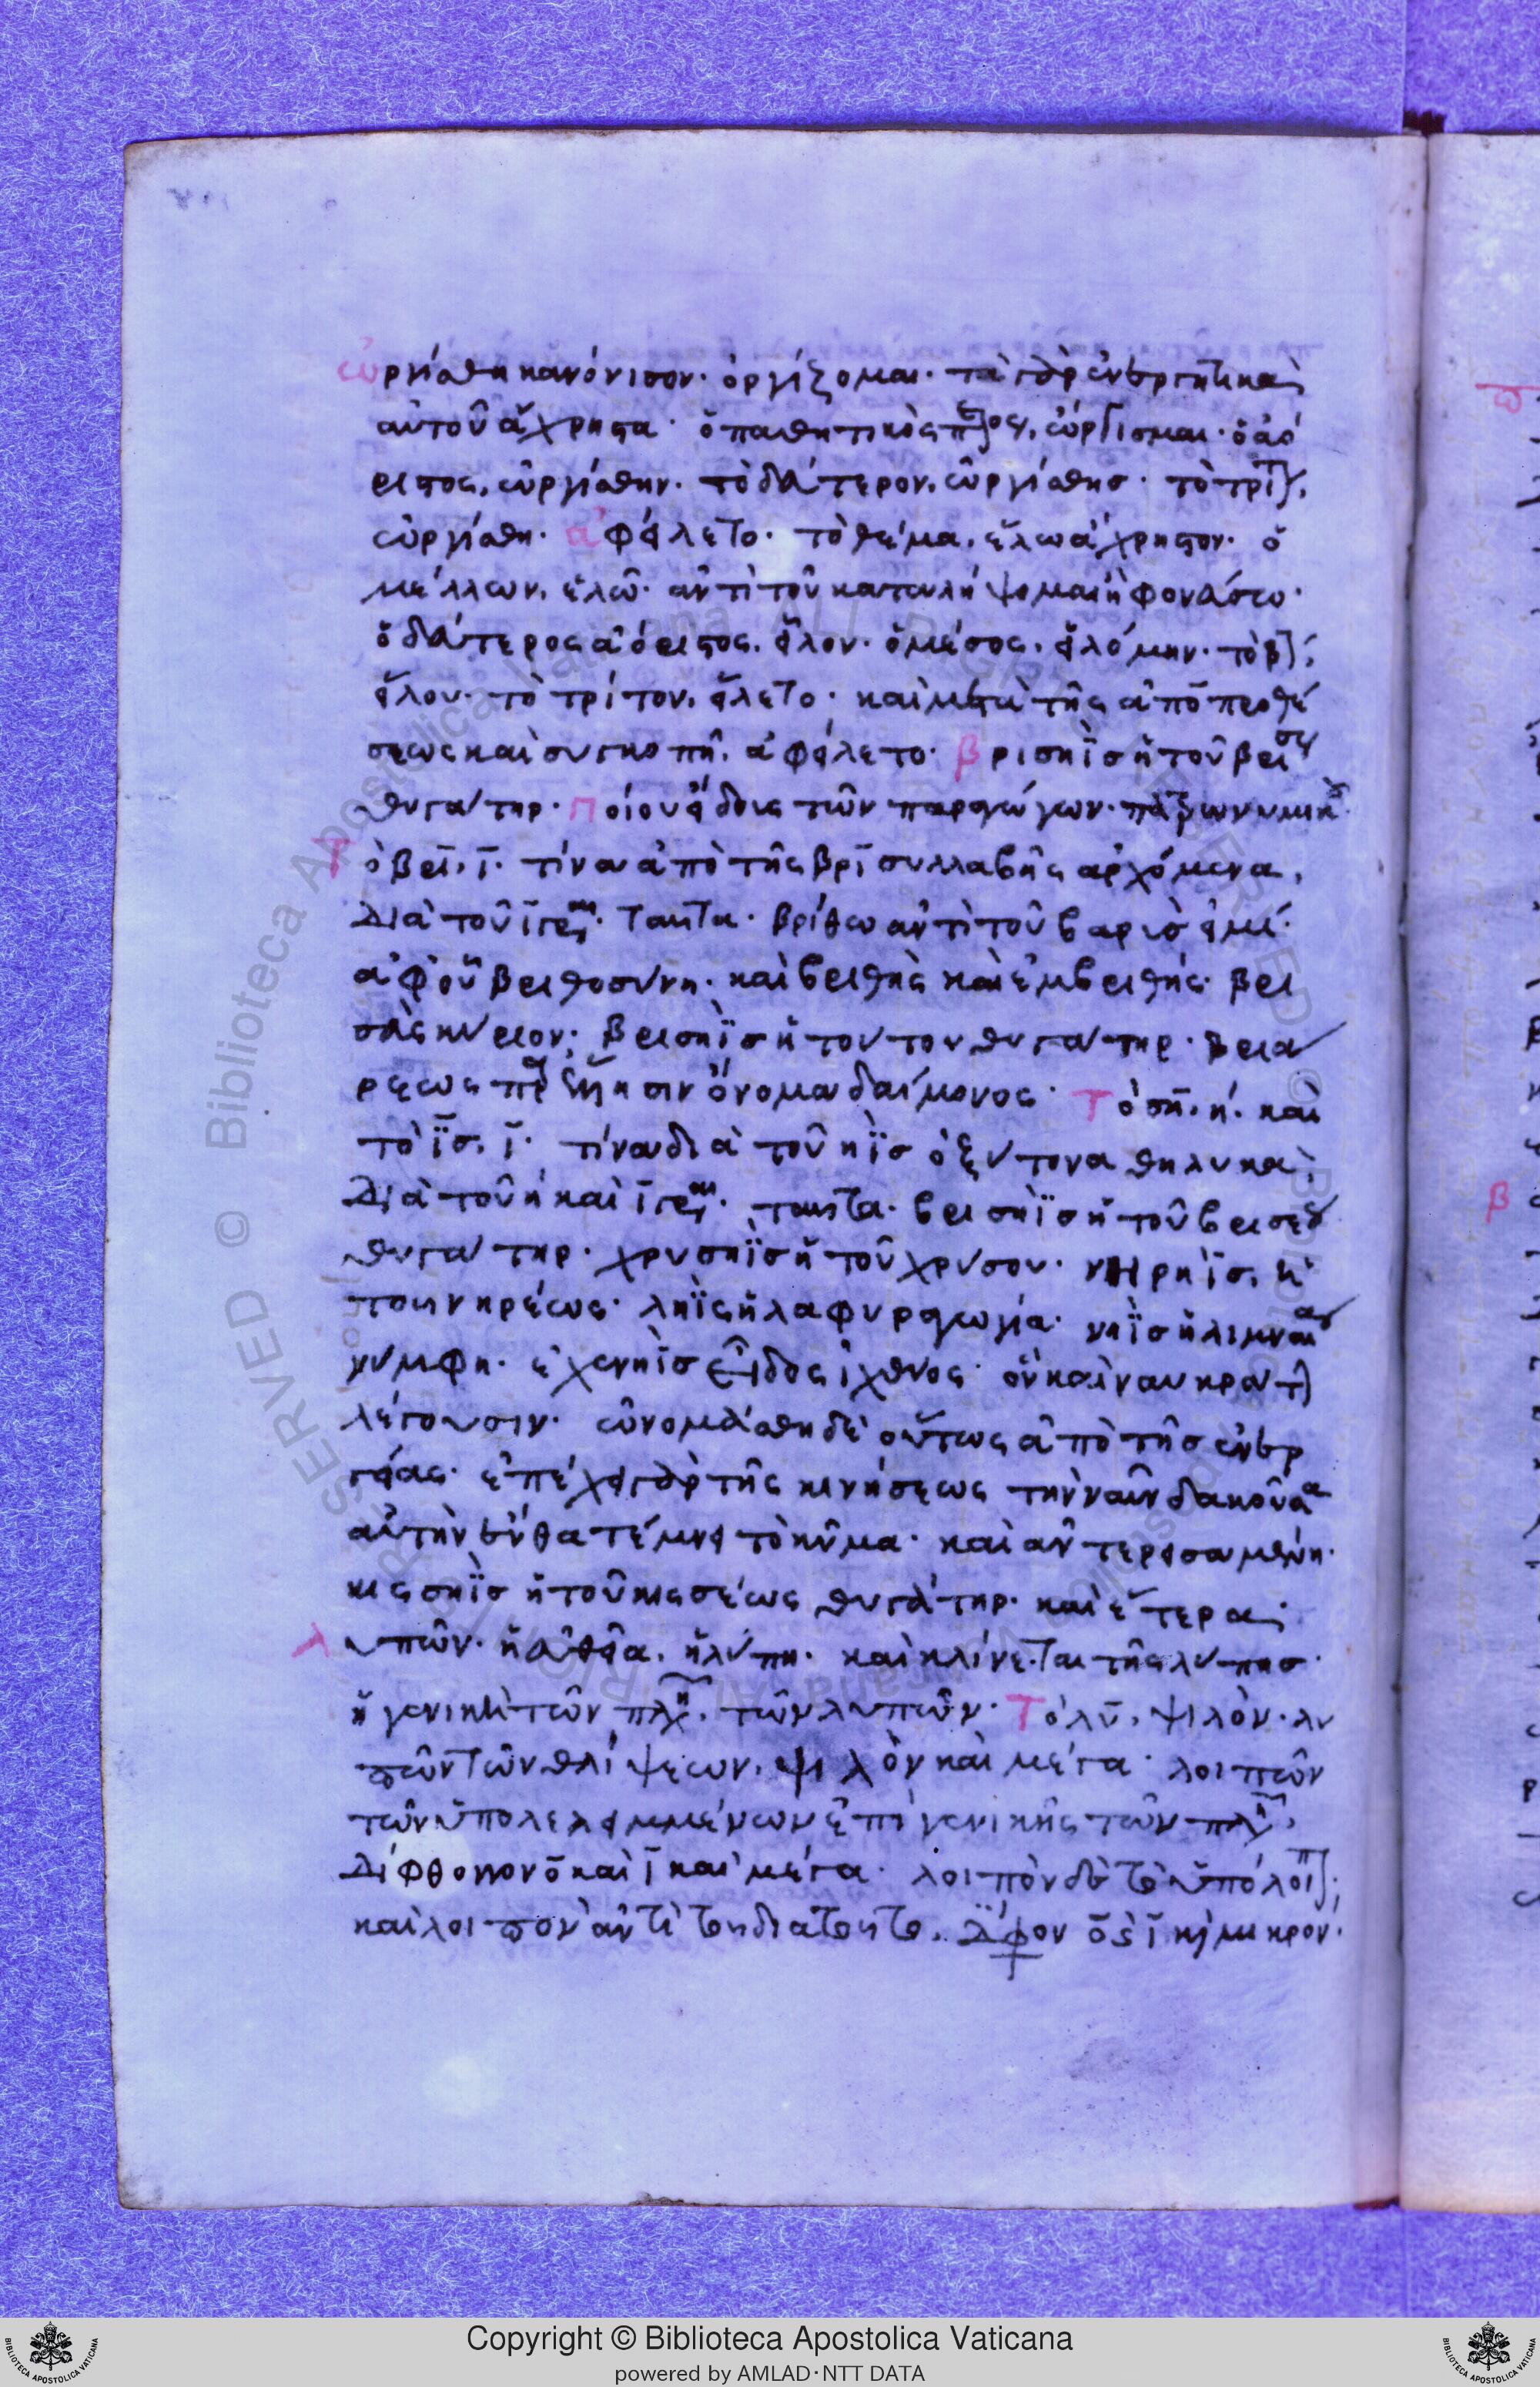 ὠργίσθη κανόνισον· ὀργίζομαι· τὰ γὰρ ἐνεργητικὰ
αὐτοῦ ἄχρηστα· ὁ παθητικὸς, ὤργισμαι· ὁ ἀό
ριστος, ὠργίσθην· τὸ δεύτερον, ὠργίσθησ· τὸ τρι,
ὠργίσθη· ἀφείλετο· τὸ θέμα, ἕλω ἄχρηστον· ὁ
μέλλων, ἑλῶ· ἀντὶ τοῦ καταλήψομαι ἢ φονεύσω·
ὁ δεύτερος ἀόριστος, εἷλον· ὁ μέσος, εἱλόμην· τὸ β,
εἵλου· τὸ τρίτον, εἵλετο· καὶ μετὰ τῆς ἀπὸ προθέ
σεως καὶ συγκοπῆ, ἀφείλετο· βρισηῒσ ἡ τοῦ βρισου
θυγάτηρ· ποίου εἴδους τῶν παραγώγων·
τὸ βρι, ι· τίνα ἀπὸ τῆς βρι συλλαβῆς ἀρχόμενα,
διὰ τοῦ ι γρ· ταῦτα· βρίθω ἀντὶ τοῦ βαρύσ εἰμι·
ἀφ' οὗ βριθοσύνη· καὶ βριθὴς καὶ ἐμβριθής· βρι
σεὺς κύριον· βρισηῒσ ἡ τούτου θυγάτηρ· βρια
ρεως ὄνομα δαίμονος· τὸ ση, η· καὶ
τὸ ϊσ, ι· τίνα διὰ τοῦ ηϊσ ὀξύτονα θηλυκὰ,
διὰ τοῦ η καὶ ι γρ· ταῦτα· βρισηῒσ ἡ τοῦ βρισέου
θυγάτηρ· χρυσηῒσ ἡ τοῦ χρύσου· νηρηῒσ, ἡ
του νηρέως· ληῒς ἡ λαφυραγωγία· νηῒσ ἡ λιμναία
νύμφη· ἐχενηῒσ εἶδος ἰχθύος· ὃν καὶ ναυκράτη
λέγουσιν· ὠνομάσθη δὲ οὕτως ἀπὸ τῆσ ἐνερ
γείας· ἐπέχει γὰρ τῆς κινήσεως τὴν ναῦν δακοῦσα
αὐτὴν ἔνθα τέμνει τὸ κῦμα·
κισσηῒσ ἡ τοῦ κισσέως θυγάτηρ· καὶ ἕτερα,
λυπῶν· ἡ εὐθεῖα, ἡ λύπη· καὶ κλίνεται τῆς λύπησ·
ἡ γενικὴ τῶν πλη, τῶν λυπῶν· τὸ λυ, ψιλόν· λυ
πῶν τῶν θλίψεων, ψιλὸν καὶ μέγα· λοιπῶν
τῶν ὑπολελειμμένων ἐπὶ γενικῆς τῶν πλη,
δίφθογγον ο καὶ ι καὶ μέγα· λοιπὸν δὲ τὸ ὑπόλοιπ,
καὶ λοιπὸν ἀντὶ τοῦ διατοῦτο, δίφον ο καὶ ι καὶ μικρον·